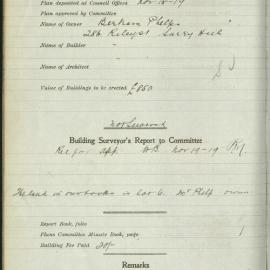 Plan deposited at Council Offices Nov 18-19
Plan approved by Committee
Name of Owner Bertram Phelps
286 Riley st Surry Hill
Name of Builder
Name of Architect
Value of Buildings to be erected £850
Building Surveyor's Report to Committee
Rec for app. Nov 19-19
The land in our books is lot 6. Mr Phelp owner
Report Book, folio
Plans Committee Minute Book, page
Building Fee Paid 20/-
Remarks